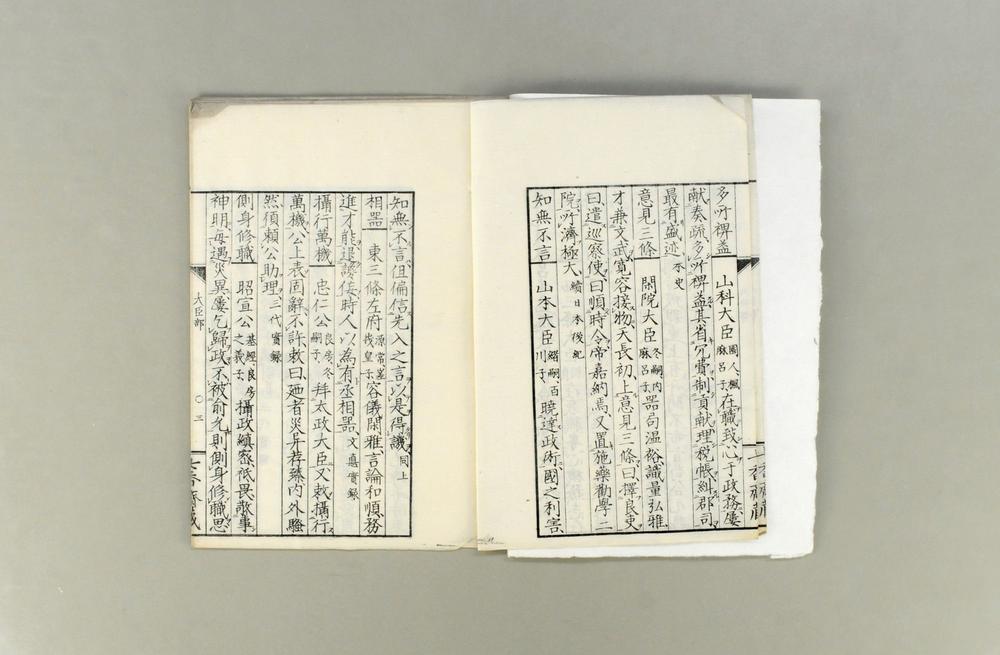 多所裨益 山科大臣 園人、楓麻呂子、 在職致心于政務屢
献奏疏多所裨益其省冗費制貢献理税帳糾郡司
最有盛迹 本史
意見三條 閑院大臣 冬嗣、内麻呂子、 器局温裕識量弘雅
才兼文武寛容接物天長初上意見三條曰擇良吏
曰遣巡察使曰順時令帝嘉納焉又置施藥勸學二
院所濟極大 續日本後紀
知無不言 山本大臣 緒嗣、百川子、 曉達政術國之利害
知無不言但偏信先入之言以是得譏 同上
相器 東三條左府 源常嵯峨皇子、 容儀閑雅言論和順務
進才能退謏佞時人以為有丞相器 文德實録
攝行萬機 忠仁公 良房、冬嗣子、 拜太政大臣又敕攝行
萬機公上表固辭不許敕曰廼者災异荐臻内外騷
然須頼公助理 三代實録
側身修職 昭宣公 基經、良房之義子、 攝政縝密祗畏敬事
神明毎遇災異屢乞歸政不被俞允則側身修職思
大臣部
〇三